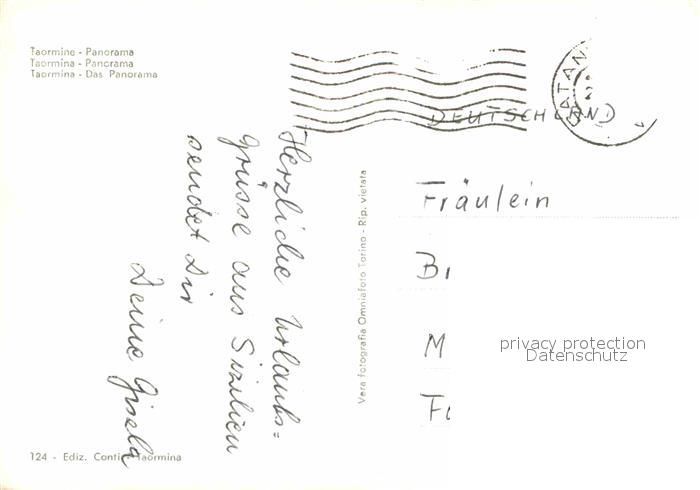 Taormine - Panorama
Taormina - Panorama
Taormina - Das Panorama
CATAN
DEUTSCHLAND
Herzliche Urlaubs-
grüsse aus Sizilien
sendet Dir
Deine Gisela
Vera fotografia Omniafoto Torino - Rip. vietata
Fräulein
B
M
F
privacy protection
Datenschutz
124 - Ediz. Conti - Taormina